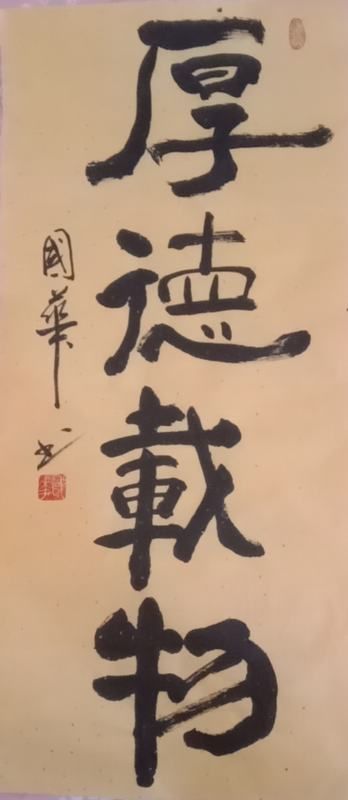 厚德載物
國華书